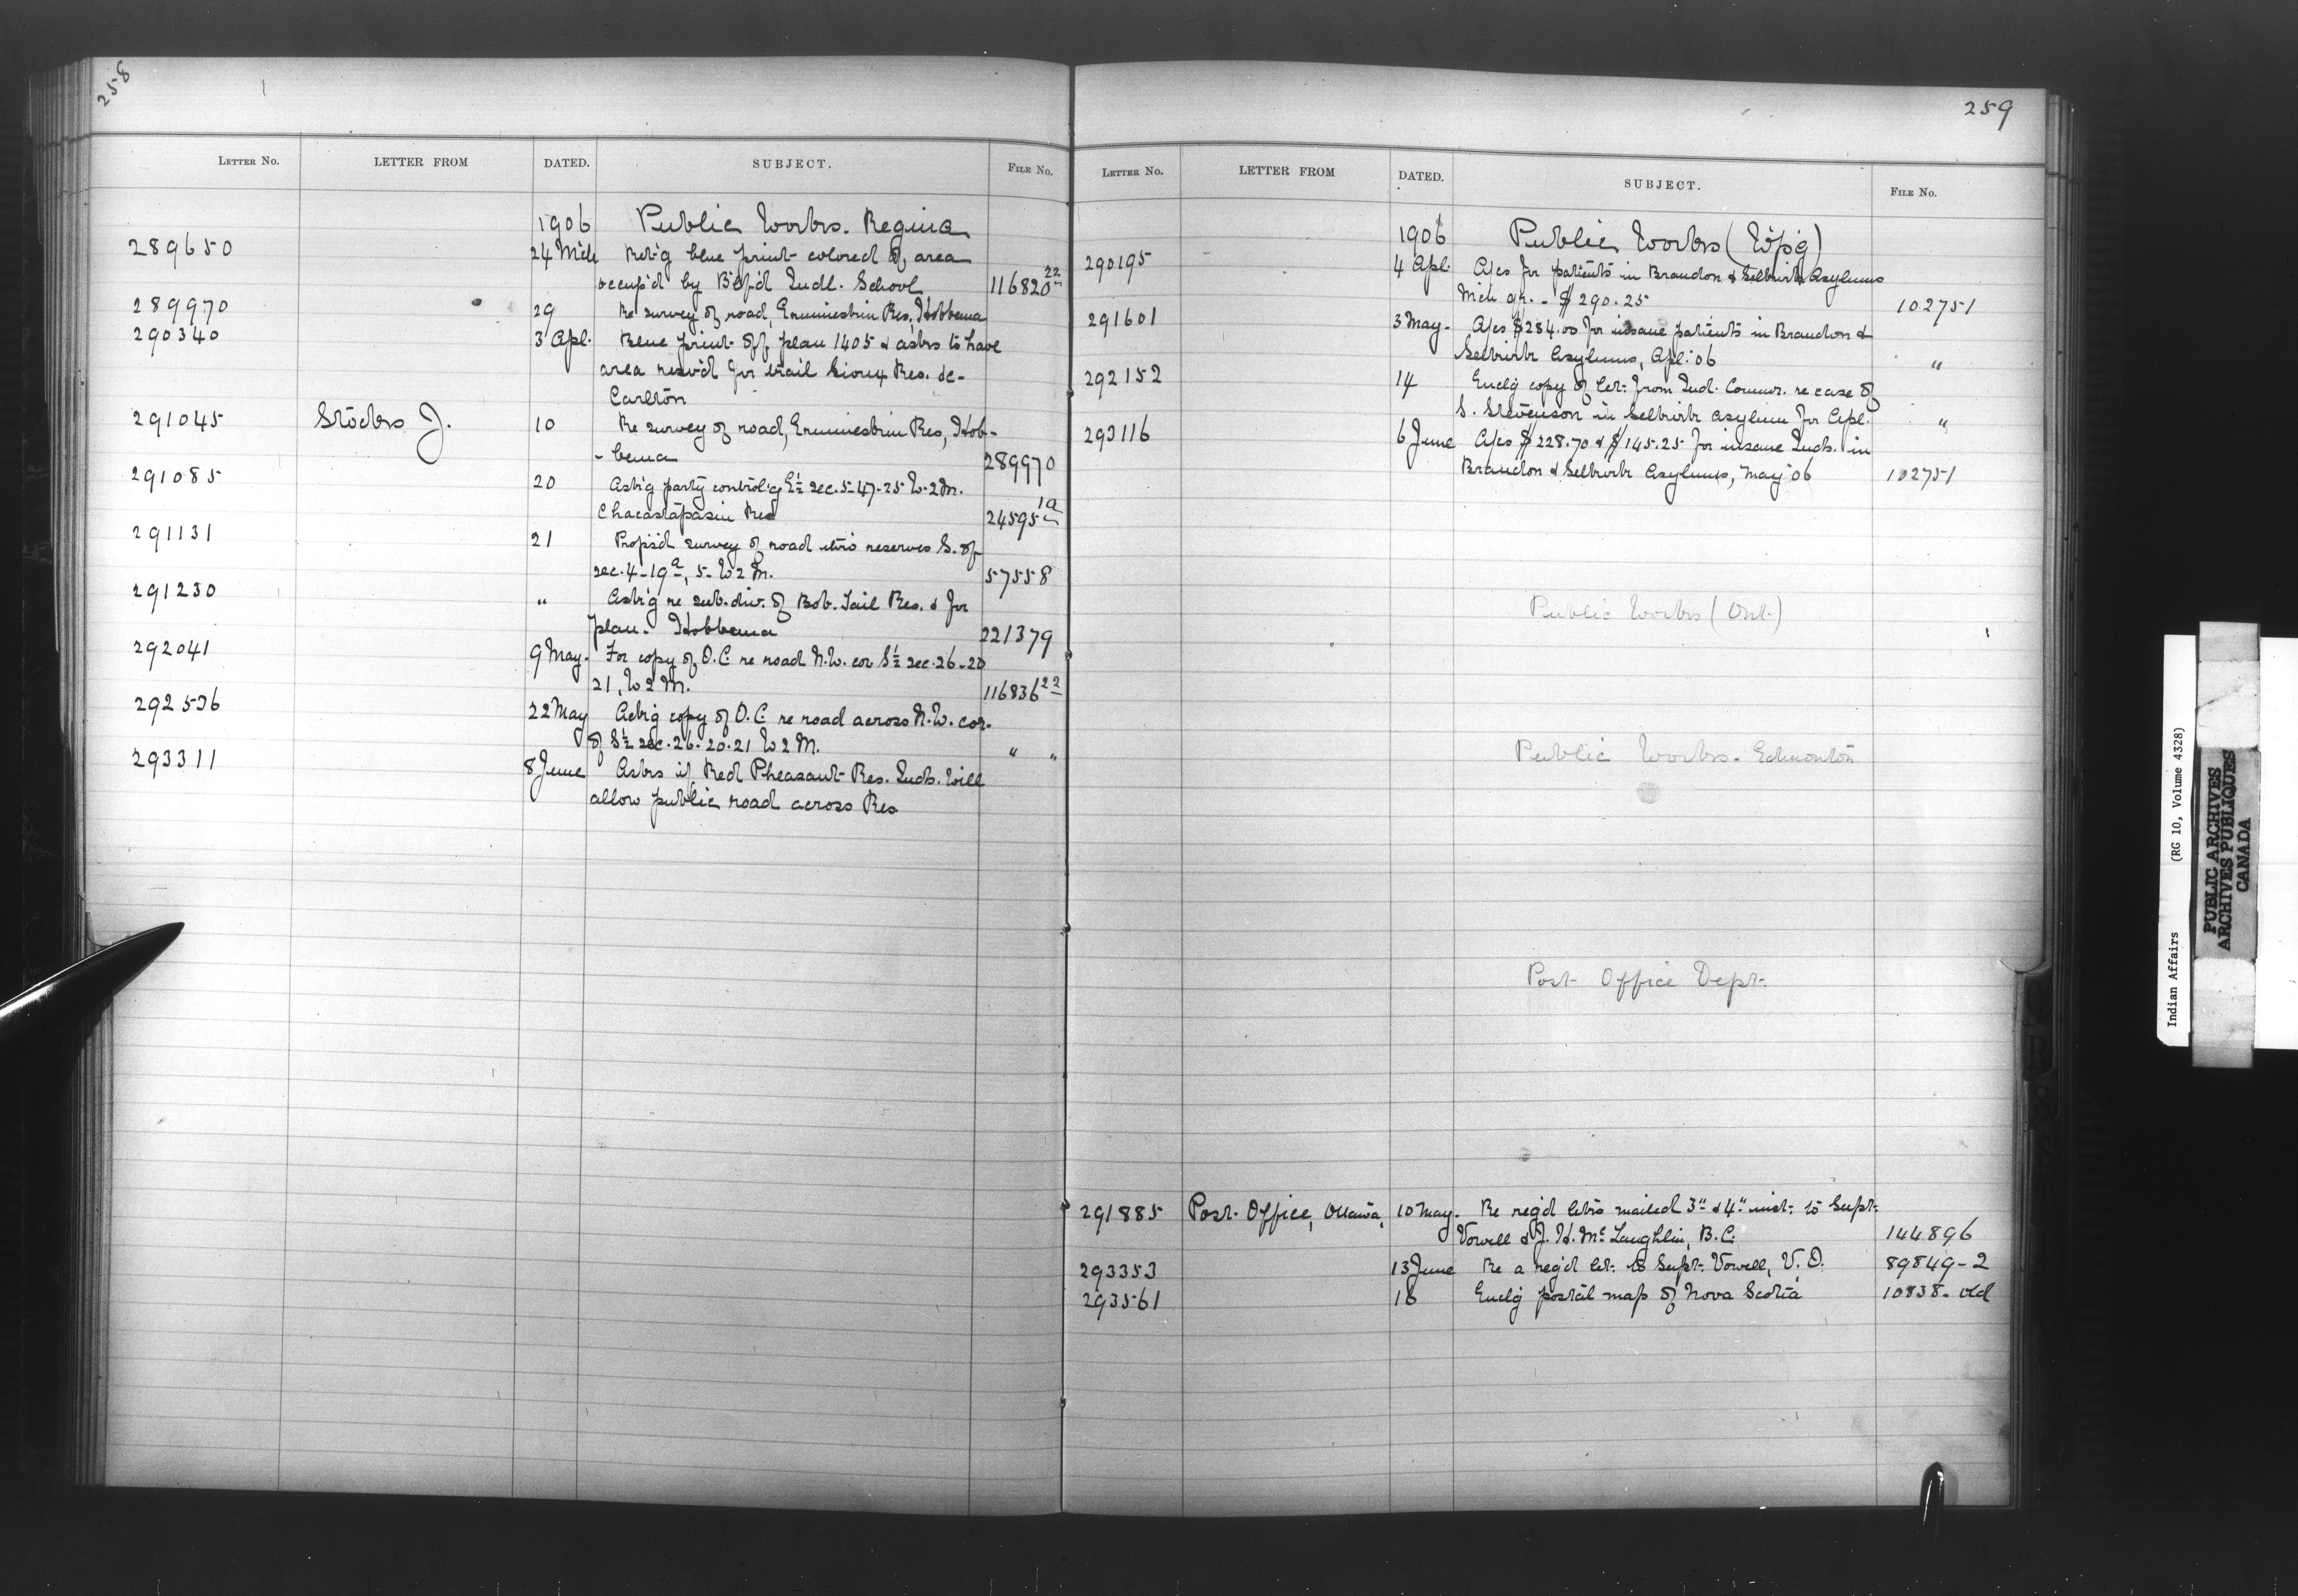 258
LETTER NO. LETTER FROM DATED. SUBJECT. FILE NO.
1906 Public Works. Regina
289650 24 Mch Ret'g blue print colored of area
occup'd by B'lf'd Indl. School 116820 22
289970 29 Re survey of road, Ermineskin Res, Hobbema
290340 3 Apl. Blue print of plan 1405 & asks to have
area resv'd for trail Sioux Res. de-
Carlton
291045 Stocks J. 10 Re survey of road, Ermineskin Res, Hob-
-bema 289970
291085 20 Ask'g party control'g E½ sec. 5-47-25 W. 2 M.
Chacastapasin Res 24595 1a
291131 21 Prop's'd survey of road thro' reserves S. of
sec. 4-19a, 5- W 2 M. 57558
291230 " Ask'g re sub-div. of Bob. Tail Res. & for
plan. Hobbema 221379
292041 9 May. For copy of O.C. re road N.W. cor S½ sec. 26-20
21, W 2 M. 116836 22
292536 22 May Ack'g copy of O.C. re road across N.W. cor.
of S½ sec. 26. 20. 21 W 2 M. " "
293311 8 June Asks if Red Pheasant Res. Inds. will
allow public road across Res
259
LETTER NO. LETTER FROM DATED. SUBJECT. FILE NO.
1906 Public Works (W'p'g)
290195 4 Apl. A/cs for patients in Brandon & Selkirk Asylums
Mch qr. - $290.25 102751
291601 3 May. A/cs $284.00 for insane patients in Brandon &
Selkirk Asylums, Apl. '06 "
292152 14 Encl'g copy of let. from Ind. Commr. re case of
S. Stevenson in Selkirk asylum for Apl. "
293116 6 June A/cs $228.70 & $145.25 for insane Inds. in
Brandon & Selkirk Asylums, May '06 102751
Public Works (Ont.)
Public Works. Edmonton
Post Office Dept.
291885 Post. Office, Ottawa, 10 May. Re reg'd let's mailed 3" & 4" inst. to Supt.
Vowell & J. H. McLaughlin, B.C. 144896
293353 13 June Re a reg'd let. to Supt. Vowell, V.O. 89849-2
293561 16 Encl'g postal map of Nova Scotia 10838. old
Indian Affairs (RG 10, Volume 4328)
PUBLIC ARCHIVES
ARCHIVES PUBLIQUES
CANADA